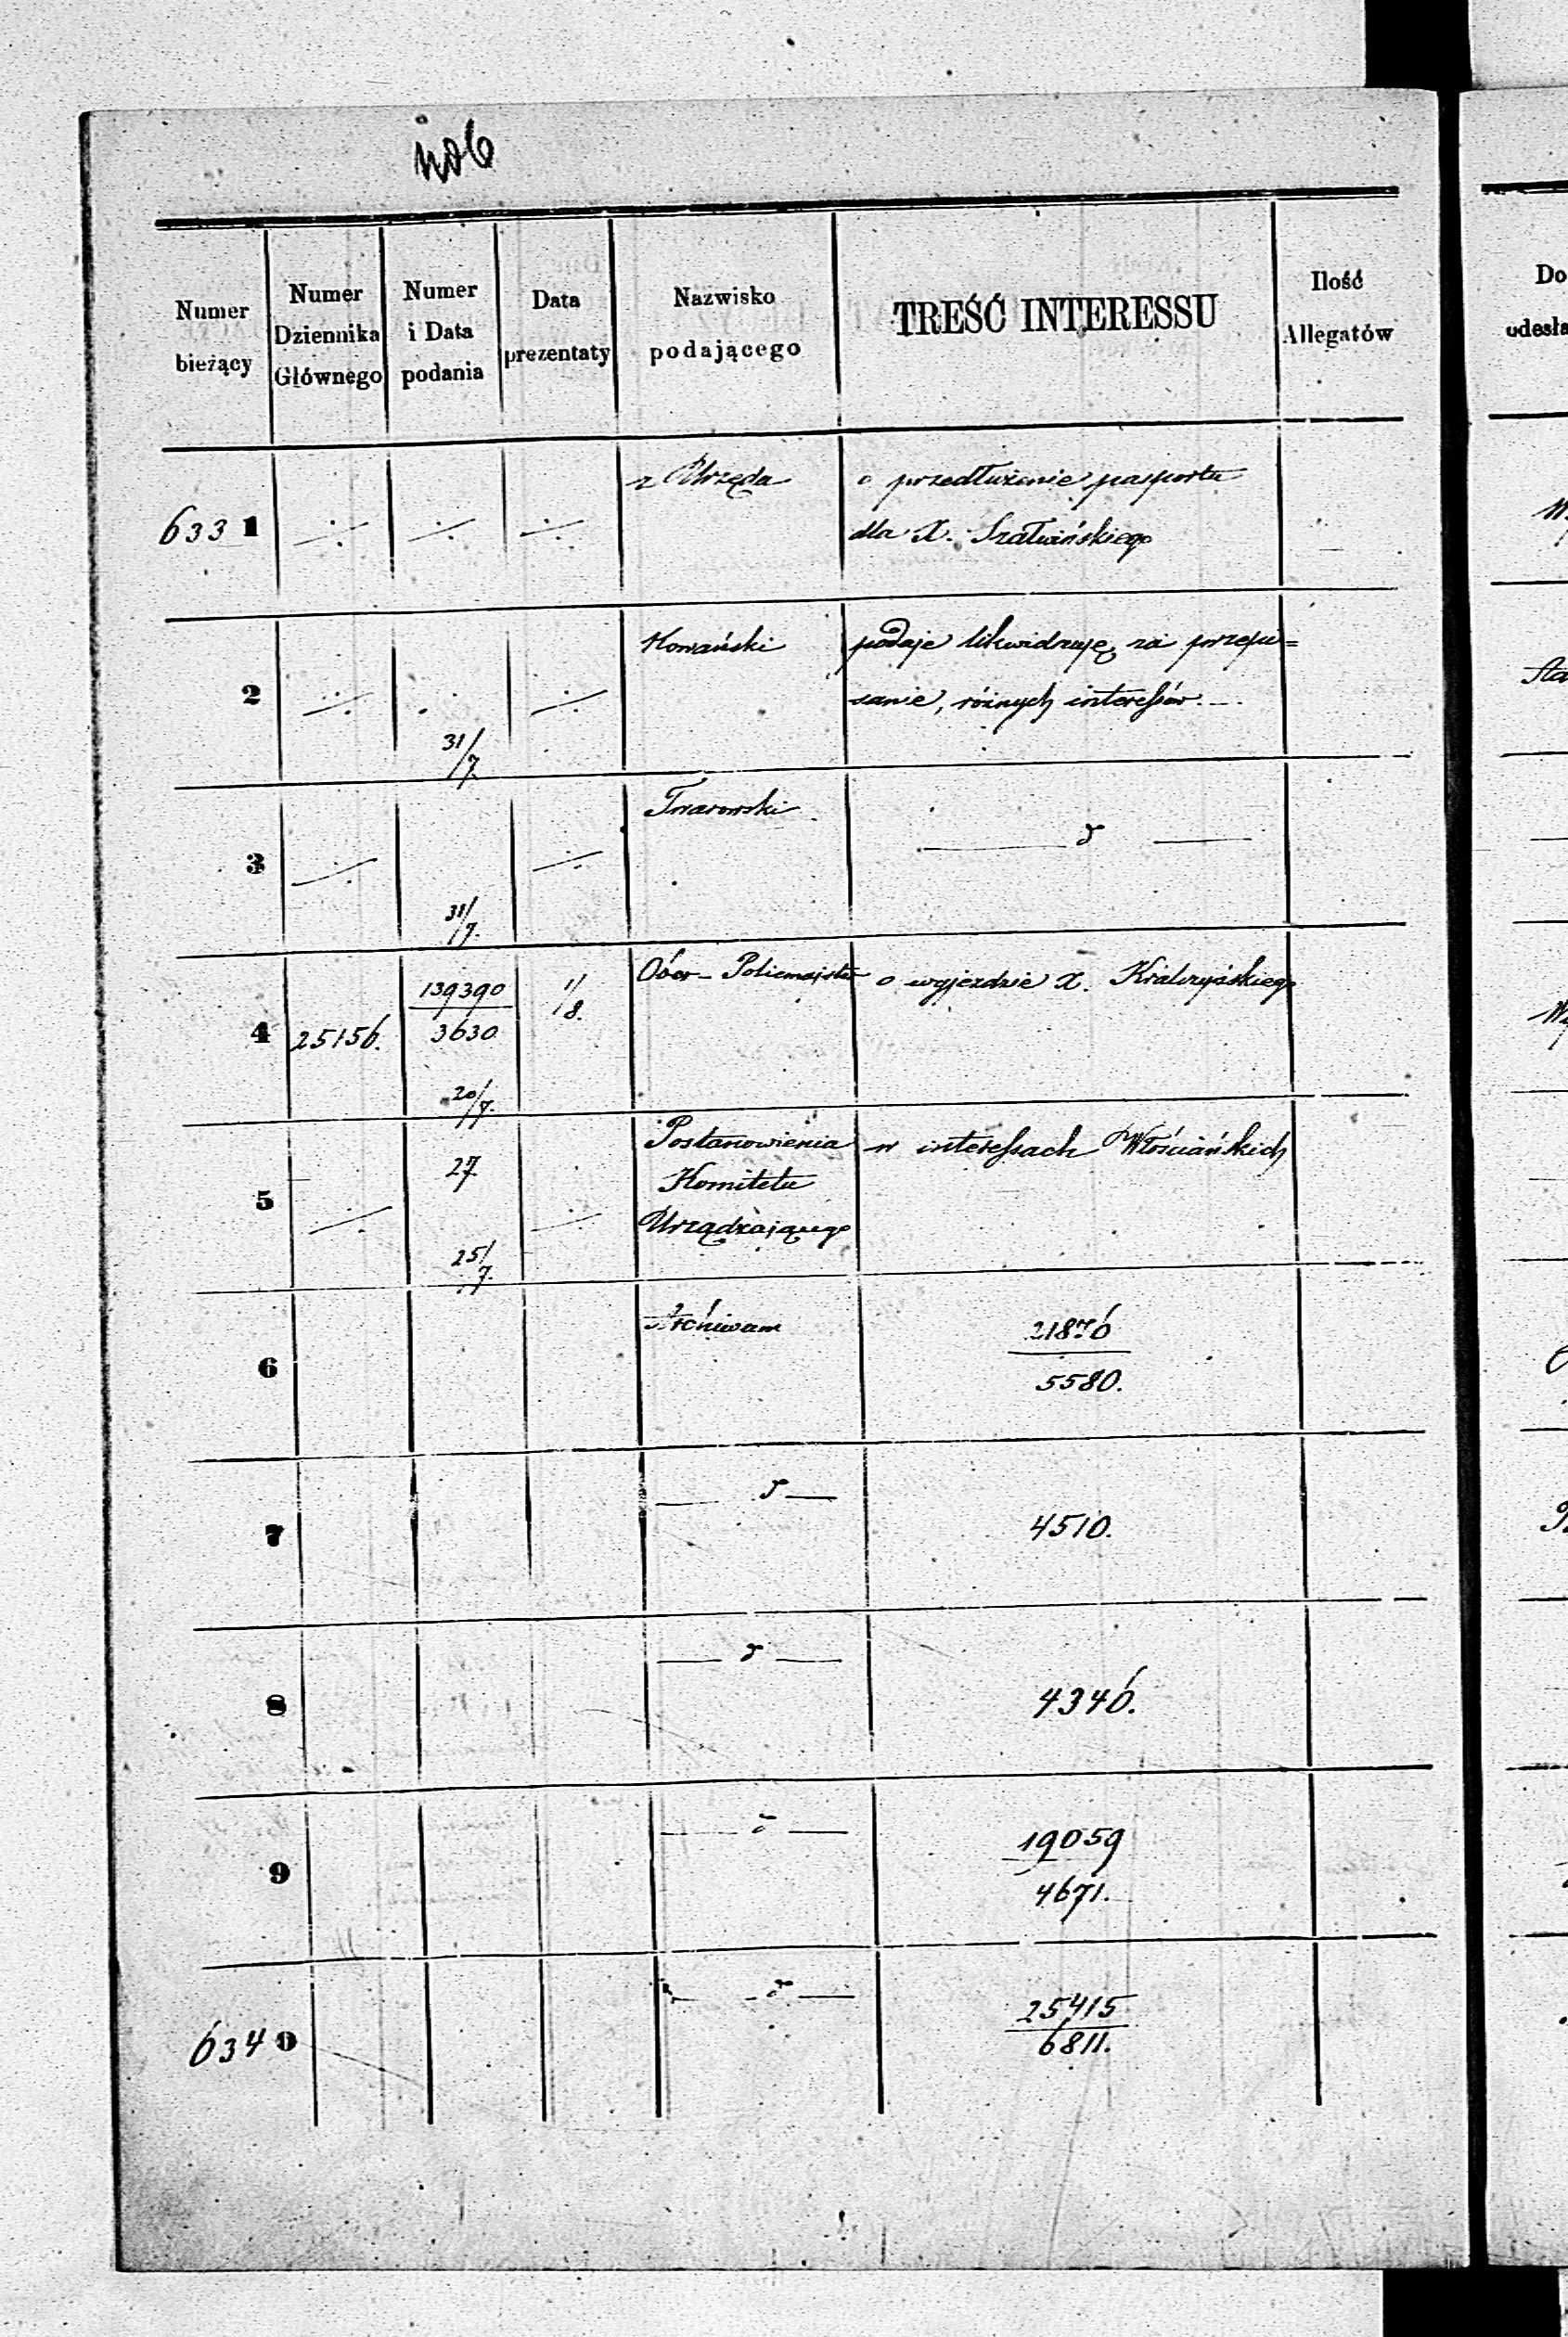 Numer bieżący
Numer Dziennika Głównego
Numer i Data podania
Data prezentaty
Nazwisko podającego
TREŚĆ INTERESSU
Ilość Allegatów
6331
z Urzęda
o przedłużenie pasportu
dla X.
2
podaje likwidacyę za przepi=
sanie, różnych interessów.
31/7
3
31/7.
4
25156.
139390
3630
20/7.
1/8.
Ober-Policmajster
o wyjezdzie X.
5
27
25/7.
Postanowienia
Komitetu
Urządzającego
w interessach Włościańskich
6
Archiwum
21876
5580.
7
4510.
8
4346.
9
19059
4671.
6340
25415
6811.
Do